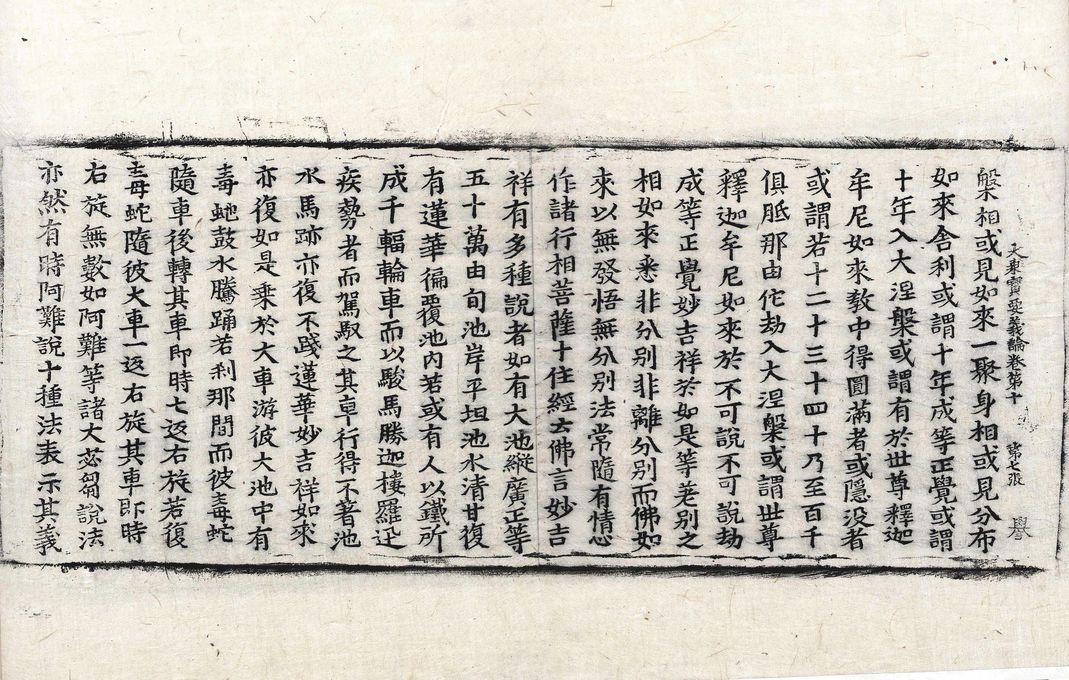 大乘寶要義論卷第十 第七張 譽
槃相或見如來一聚身相或見分布
如來舍利或謂十年成等正覺或謂
十年入大涅槃或謂有於世尊釋迦
牟尼如來教中得圓滿者或隱沒者
或謂若十二十三十四十乃至百千
俱胝那由佗劫入大涅槃或謂世尊
釋迦牟尼如來於不可說不可說劫
成等正覺妙吉祥於如是等差別之
相如來悉非分別非離分別而佛如
來以無發悟無分別法常隨有情心
作諸行相菩薩十住經云佛言妙吉
祥有多種說者如有大池縱廣正等
五十萬由旬池岸平坦池水清甘復
有蓮華徧覆池內若或有人以鐵所
成千輻輪車而以駿馬勝迦樓羅迅
疾勢者而駕馭之其車行得不著池
水馬跡亦復不踐蓮華妙吉祥如來
亦復如是乘於大車游彼大池中有
毒虵鼓水騰踊若刹那間而彼毒蛇
隨車後轉其車即時七返右旋若復
毒蛇隨彼大車一返右旋其車即時
右旋無數如阿難等諸大苾芻說法
亦然有時阿難說十種法表示其義